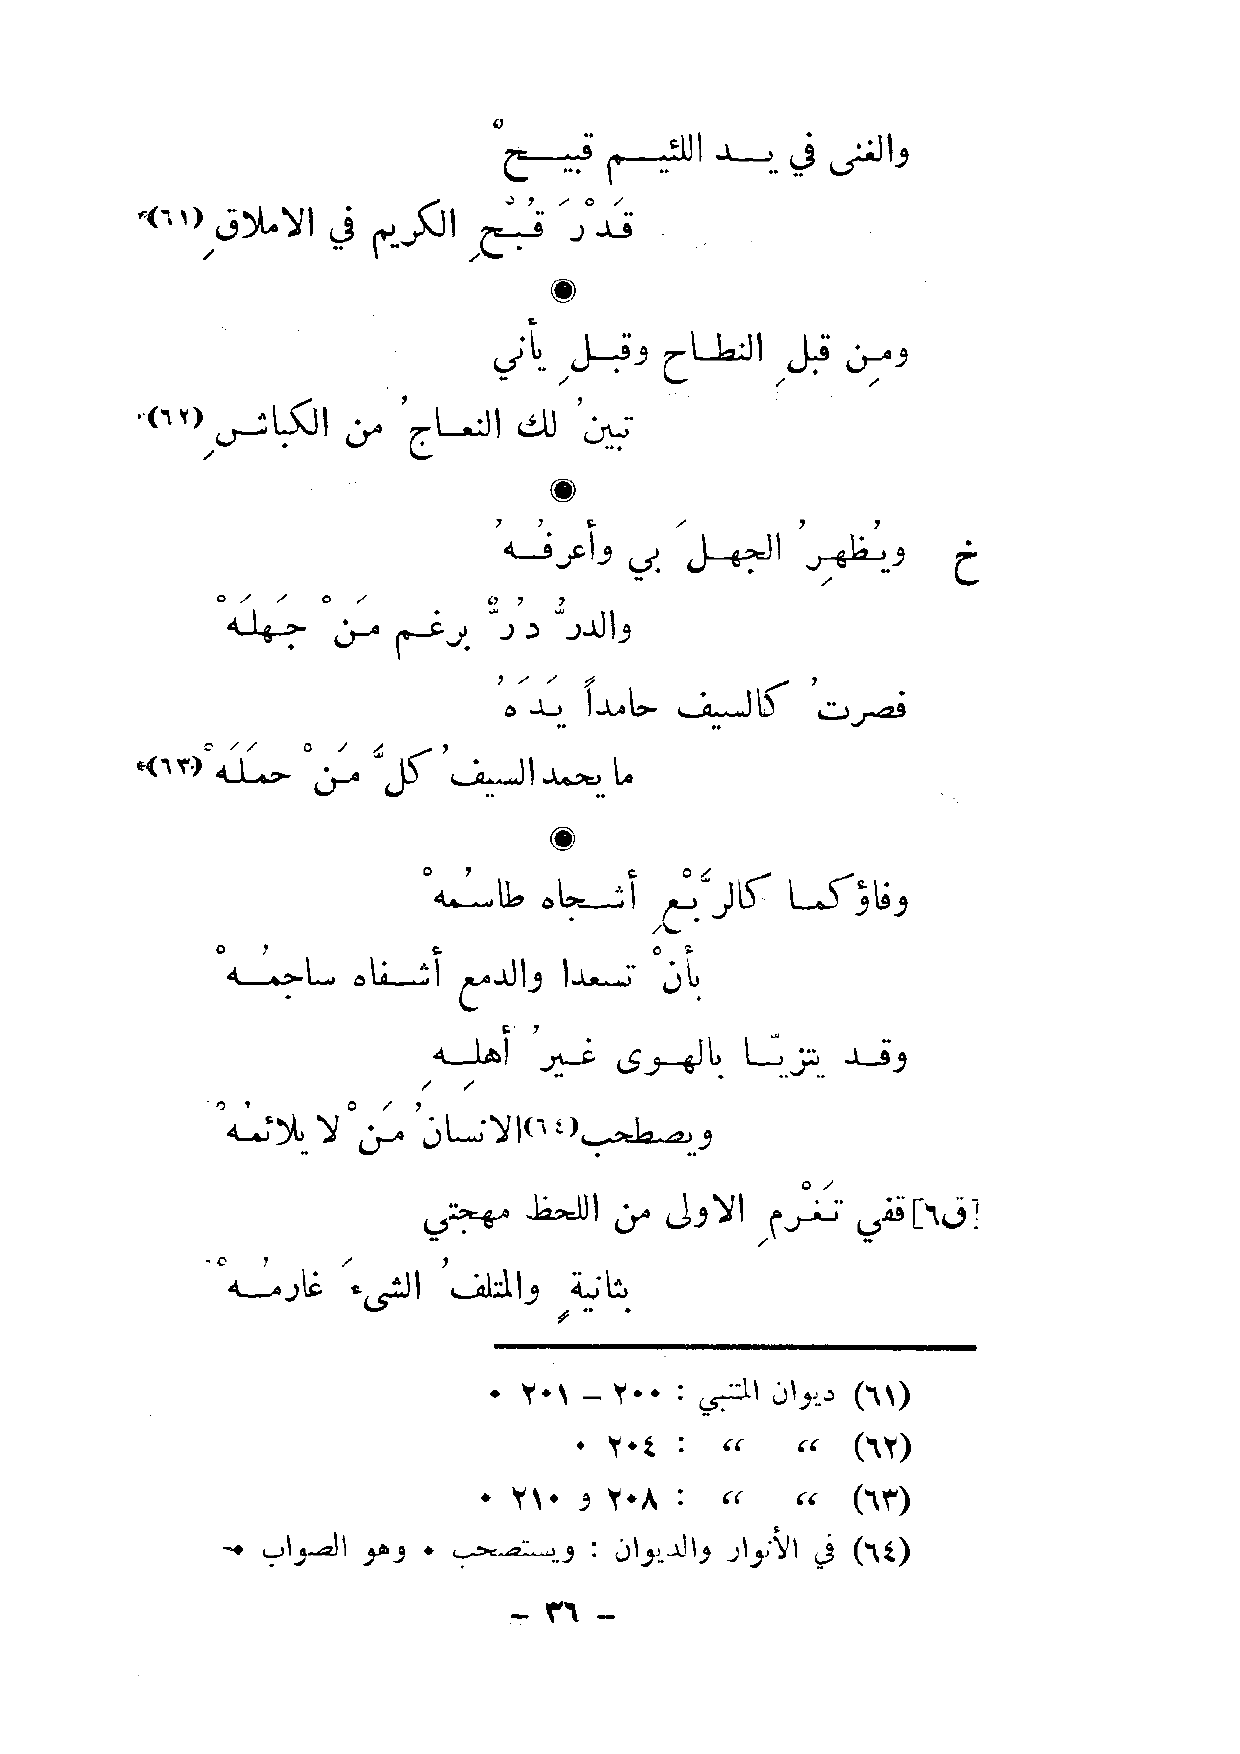 والغنى في يد اللئيم قبيحٌ
قَدْرَ قُبْحِ الكريم في الاملاقِ (٦١)
ومِن قبلِ النطاح وقبلِ يأني
تبينُ لك النعاجُ من الكباشِ (٦٢)
خ ويُظهِرُ الجهلَ بي وأعرفُهُ
والدرُّ دُرٌّ برغم مَنْ جَهِلَهْ
فصرتُ كالسيف حامداً يَدَهُ
ما يحمد السيفُ كلَّ مَنْ حمَلَهْ (٦٣)
وفاؤكما كالرَّبْعِ أشجاه طاسمُهْ
بأنْ تسعدا والدمع أشفاه ساجمُهْ
وقد يتزيّا بالهوى غيرُ أهلِهِ
ويصطحب (٦٤) الانسانُ مَنْ لا يلائمُهْ
[ق٦] قفي تَغْرمِ الاولى من اللحظ مهجتي
بثانيةٍ والمتلفُ الشيءَ غارمُهْ
(٦١) ديوان المتنبي : ٢٠٠ - ٢٠١ .
(٦٢) " " : ٢٠٤ .
(٦٣) " " : ٢٠٨ و ٢١٠ .
(٦٤) في الأنوار والديوان : ويستصحب . وهو الصواب .-
- ٣٦ -